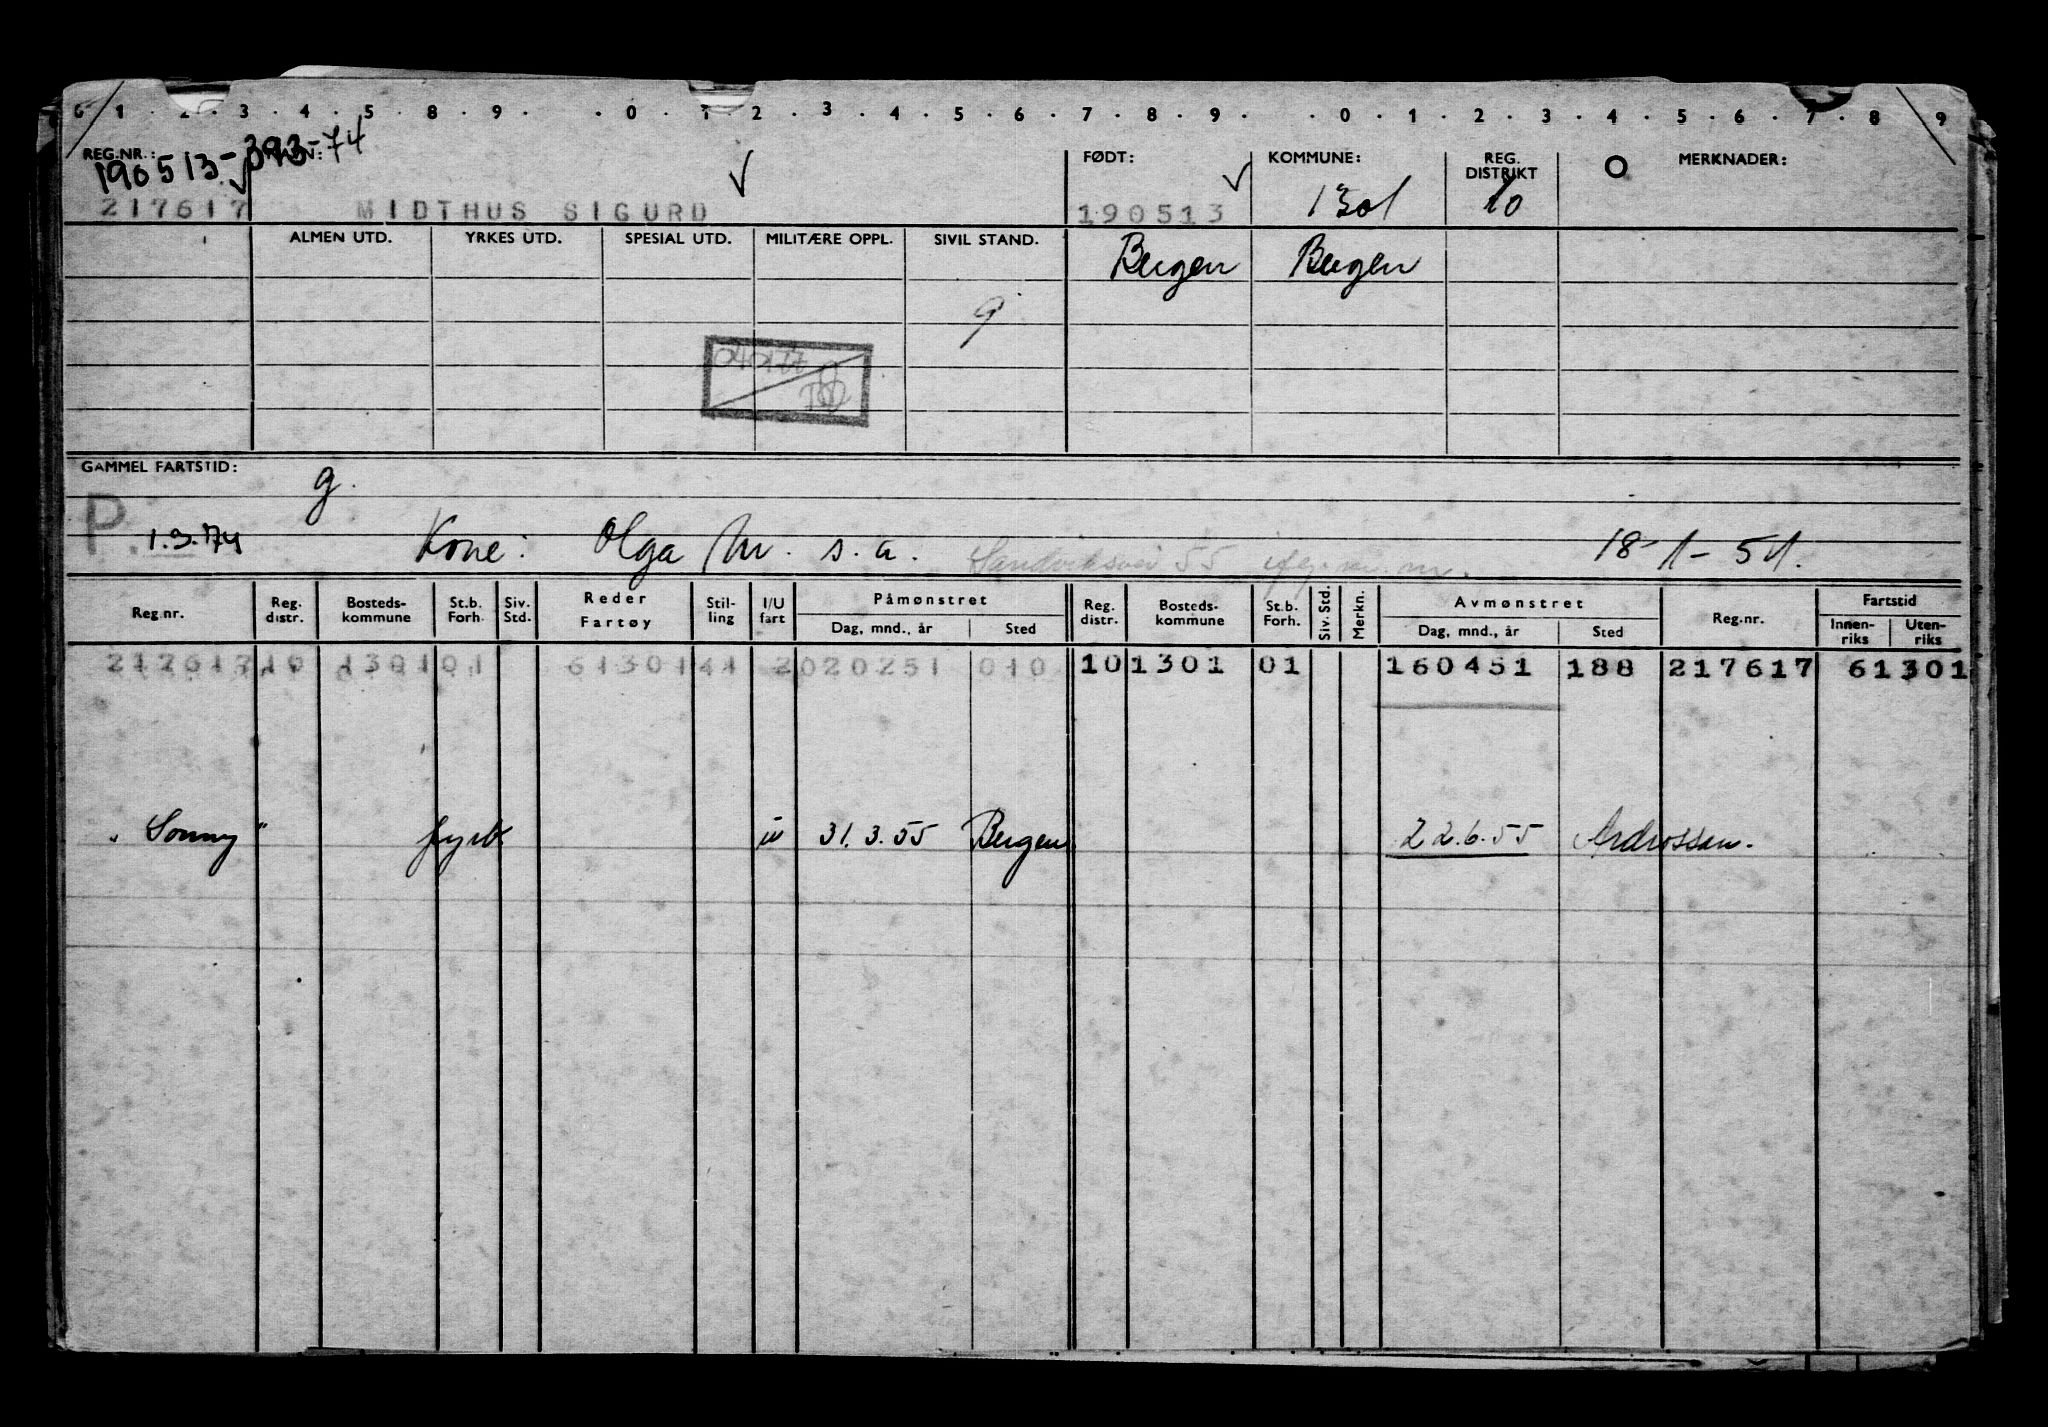 6 1 . 2 . 3 . 4 . 5 . 8 . 9 . . 0 . 1 . 2 . 3 . 4 . 5 . 6 . 7 . 8 . 9 . . 0 . 1 . 2 . 3 . 4 . 5 . 6 . 7 . 8 . 9
190513-393-74
REG.NR.: FØDT: KOMMUNE: REG. DISTRIKT O MERKNADER:
217617 MIDTHUS SIGURD 190513 1301 10
ALMEN UTD. YRKES UTD. SPESIAL UTD. MILITÆRE OPPL. SIVIL STAND. Bergen Bergen
g
040177
GAMMEL FARTSTID: g.
P. 1.3.74 Kone: Olga M. s.a. Sandviksvei 55 18-1-51.
Reg.nr. Reg. distr. Bosteds-kommune St.b. Forh. Siv. Std. Reder Fartøy Stil-ling I/U fart Påmønstret Dag, mnd., år Sted Reg. distr. Bosteds-kommune St.b. Forh. Siv. Std. Merkn. Avmønstret Dag, mnd., år Sted Reg.nr. Fartstid Innen-riks Uten-riks
217617 10 1301 01 61301 41 2 020251 010 10 1301 01 160451 188 217617 61301
"Sonny" fyrb. u 31.3.55 Bergen 22.6.55 Ardrossan.